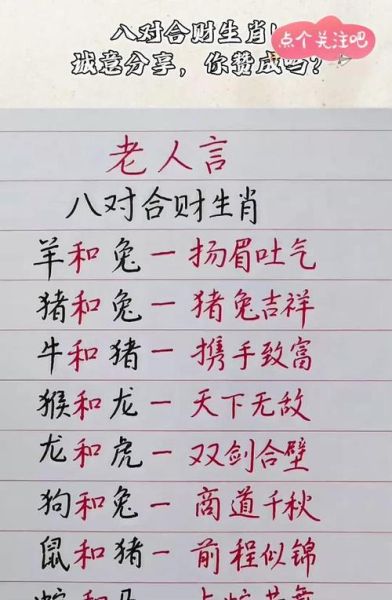 八对合财生肖!
点个关注吧
诚意分享，你赞成吗？
老人言
八对合财生肖
羊和兔一扬眉吐气
猪和兔一猪兔吉祥
牛和猪一携手致富
猴和龙一天下无敌
龙和虎一双剑合壁
狗和兔一商道千秋
鼠和猪一前程似锦